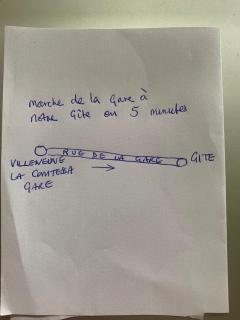 marche de la Gare à
notre Gîte en 5 minutes
RUE DE LA GARE
GITE
VILLENEUVE
LA COMTESSE
GARE